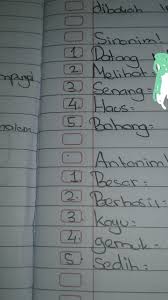 dibawah
Sinonim!
1. Datang
2. Melihat =
3. Senang =
4. Haus =
5. Bohong =
Antonim!
1. Besar =
2. Berhasil =
3. Kayu =
4. gemuk =
5. Sedih =